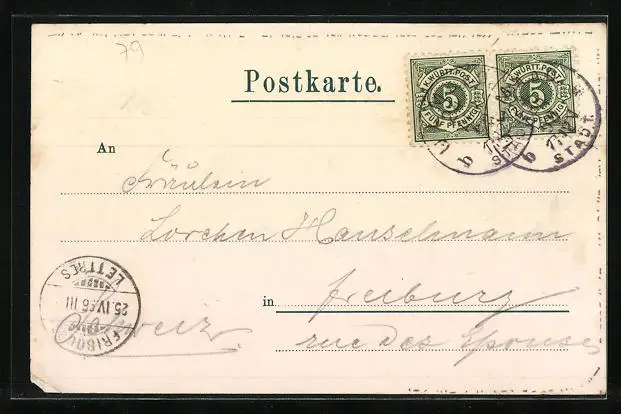 79
Postkarte.
K.WÜRTT.POST
5
FÜNF PFENNIG
K.WÜRTT.POST
5
FÜNF PFENNIG
b
STADT.
b
STADT.
An
Fräulein
Lorchen Hanselmann
in Freiburg
Schweiz
rue des Epouses
FRIBOURG
25.IV.96 III
LETTRES